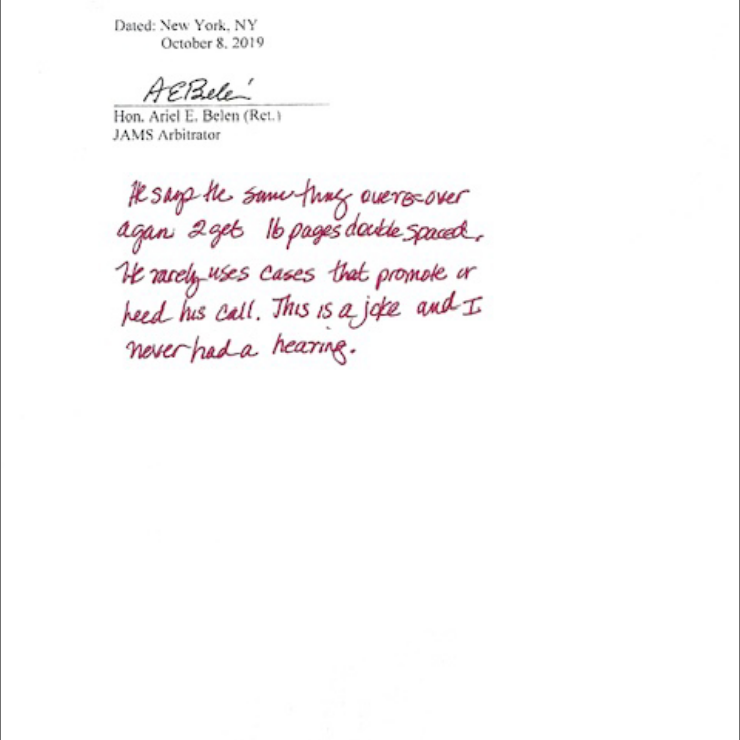 Dated: New York, NY
October 8, 2019
AEBelen
Hon. Ariel E. Belen (Ret.)
JAMS Arbitrator
He says the same thing over & over
again 2 get 16 pages double spaced.
He rarely uses cases that promote or
heed his call. This is a joke and I
never had a hearing.